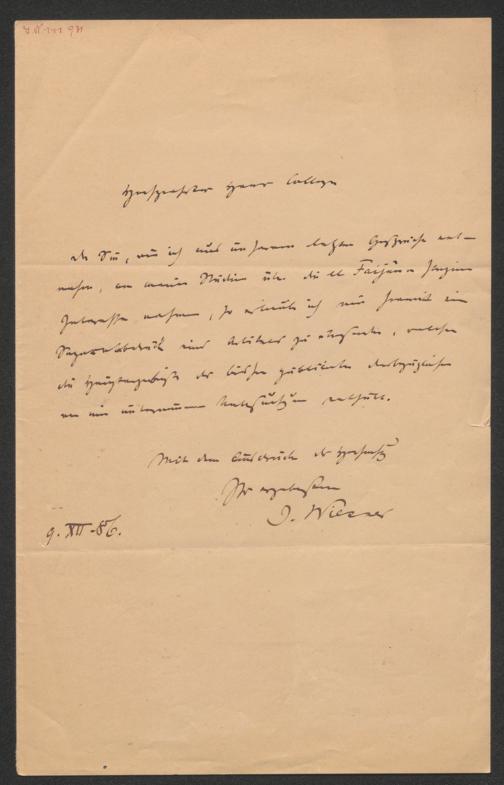 Hochgeehrter Herr College
da Sie, wie ich aus unserem letzten Gespräche ent-
nahm, an meinen Studien über die el Faijûmer Papiere
Interesse nehmen, so erlaube ich mir hiermit ein
Separatabdruck eines Artikels zu übersenden, welcher
die Hauptergebnisse der bisher publicirten diesbezüglichen
von mir unternommenen Untersuchungen enthält.
Mit dem Ausdruck der Hochachtung
Ihr ergebenster
J. Wiesner
9. XII. 86.